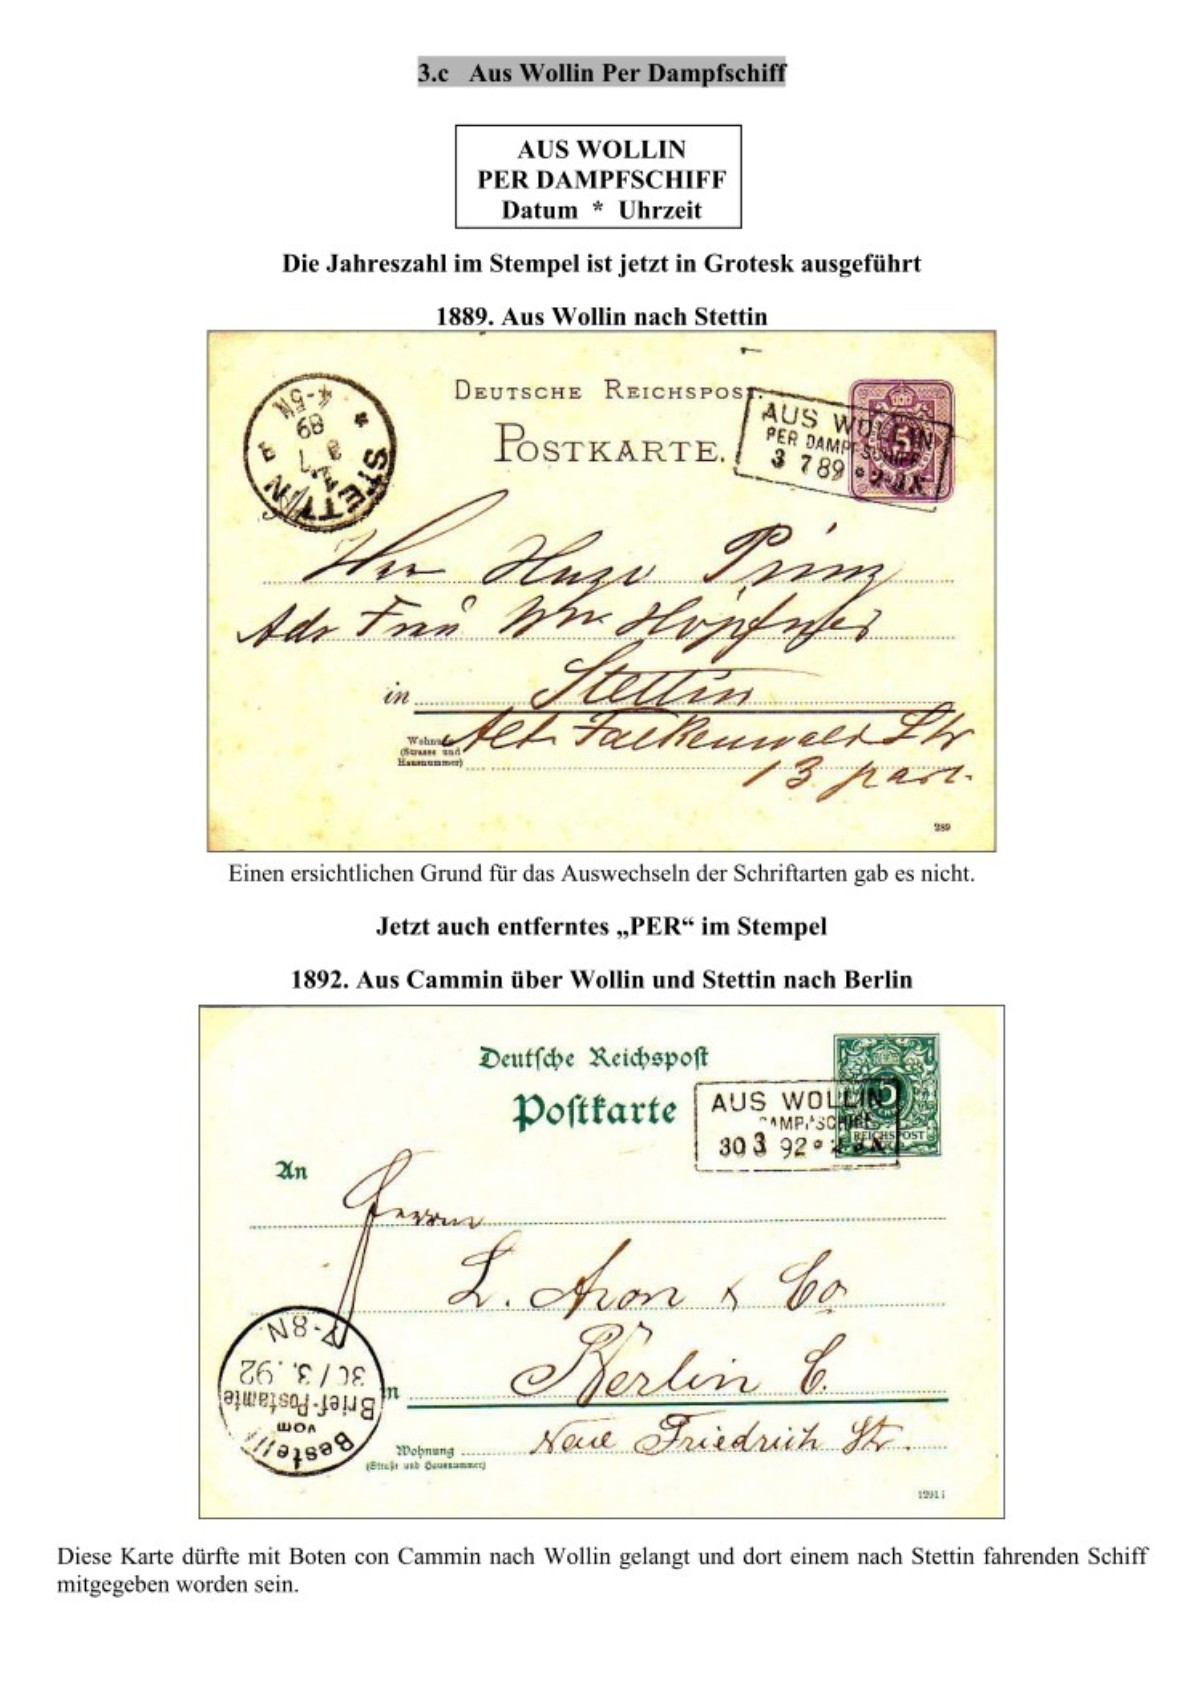 3.c Aus Wollin Per Dampfschiff
AUS WOLLIN
PER DAMPFSCHIFF
Datum * Uhrzeit
Die Jahreszahl im Stempel ist jetzt in Grotesk ausgeführt
1889. Aus Wollin nach Stettin
DEUTSCHE REICHSPOST.
POSTKARTE.
AUS WOLLIN
PER DAMPFSCHIFF
3 7 89
STETTIN
3 7
89
4-5N
5
Herr Hugo Prinz
Adr Frau Wwe
in Stettin
Wohnung
(Strasse und
Hausnummer)
Alt Falkenwald Str
13 part.
289
Einen ersichtlichen Grund für das Auswechseln der Schriftarten gab es nicht.
Jetzt auch entferntes „PER“ im Stempel
1892. Aus Cammin über Wollin und Stettin nach Berlin
Deutſche Reichspoſt
Poſtkarte
AUS WOLLIN
DAMPFSCHIFF
30 3 92
5
REICHSPOST
An
Herrn
L. Aron & Co
Berlin C.
in
Neue Friedrich Str.
Wohnung
(Straße und Hausnummer)
Bestellt
vom
Brief-Postamte
30/3.92
7-8N.
Diese Karte dürfte mit Boten con Cammin nach Wollin gelangt und dort einem nach Stettin fahrenden Schiff
mitgegeben worden sein.